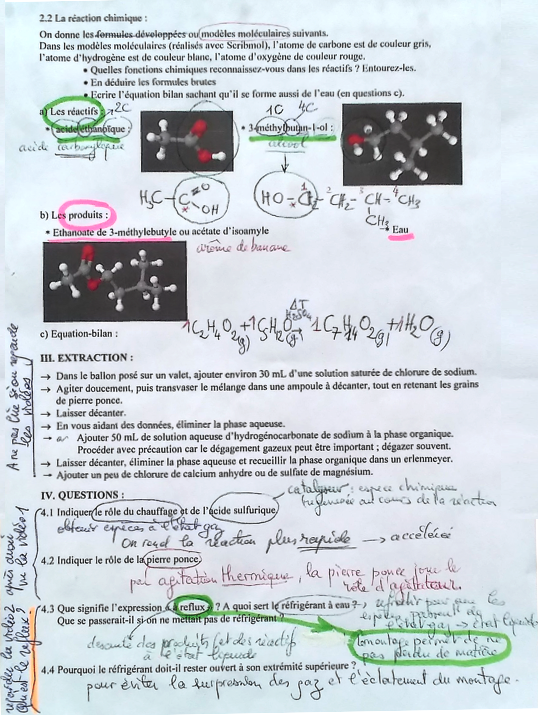 2.2 La réaction chimique :
On donne les formules développées ou modèles moléculaires suivants.
Dans les modèles moléculaires (réalisés avec Scribmol), l'atome de carbone est de couleur gris,
l'atome d'hydrogène est de couleur blanc, l'atome d'oxygène de couleur rouge.
• Quelles fonctions chimiques reconnaissez-vous dans les réactifs ? Entourez-les.
• En déduire les formules brutes
• Ecrire l'équation bilan sachant qu'il se forme aussi de l'eau (en questions c).
a) Les réactifs : 2C
1C 4C
• acide éthanoïque :
• 3-méthylbutan-1-ol :
acide carboxylique
alcool
H3C - C =O OH
HO - CH2 - CH2 - CH - CH3
CH3
b) Les produits :
• Ethanoate de 3-méthylebutyle ou acétate d'isoamyle
• Eau
arôme de banane
ΔT
H2SO4
c) Equation-bilan :
1C2H4O2(g) + 1C5H12O(g) → 1C7H14O2(g) + 1H2O(g)
A ne pas lire si on regarde les vidéos
III. EXTRACTION :
→ Dans le ballon posé sur un valet, ajouter environ 30 mL d'une solution saturée de chlorure de sodium.
→ Agiter doucement, puis transvaser le mélange dans une ampoule à décanter, tout en retenant les grains
de pierre ponce.
→ Laisser décanter.
→ En vous aidant des données, éliminer la phase aqueuse.
→ Ajouter 50 mL de solution aqueuse d'hydrogénocarbonate de sodium à la phase organique.
Procéder avec précaution car le dégagement gazeux peut être important ; dégazer souvent.
→ Laisser décanter, éliminer la phase aqueuse et recueillir la phase organique dans un erlenmeyer.
→ Ajouter un peu de chlorure de calcium anhydre ou de sulfate de magnésium.
IV. QUESTIONS :
catalyseur : espèce chimique
au cours de la réaction
4.1 Indiquer le rôle du chauffage et de l'acide sulfurique
obtenir espèces à l'état gaz
On rend la réaction plus rapide → accélérée
4.2 Indiquer le rôle de la pierre ponce.
par agitation thermique, la pierre ponce joue le
rôle d'agitateur.
4.3 Que signifie l'expression « à reflux » ? A quoi sert le réfrigérant à eau ?
Que se passerait-il si on ne mettait pas de réfrigérant ?
l'état gaz → état liquide
descente des produits et des réactifs
à l'état liquide
montage permet de ne
pas perdre de matière
4.4 Pourquoi le réfrigérant doit-il rester ouvert à son extrémité supérieure ?
pour éviter la surpression des gaz et l'éclatement du montage.
après avoir vu la vidéo 1
regarder la vidéo 2
Qu'est le reflux ?